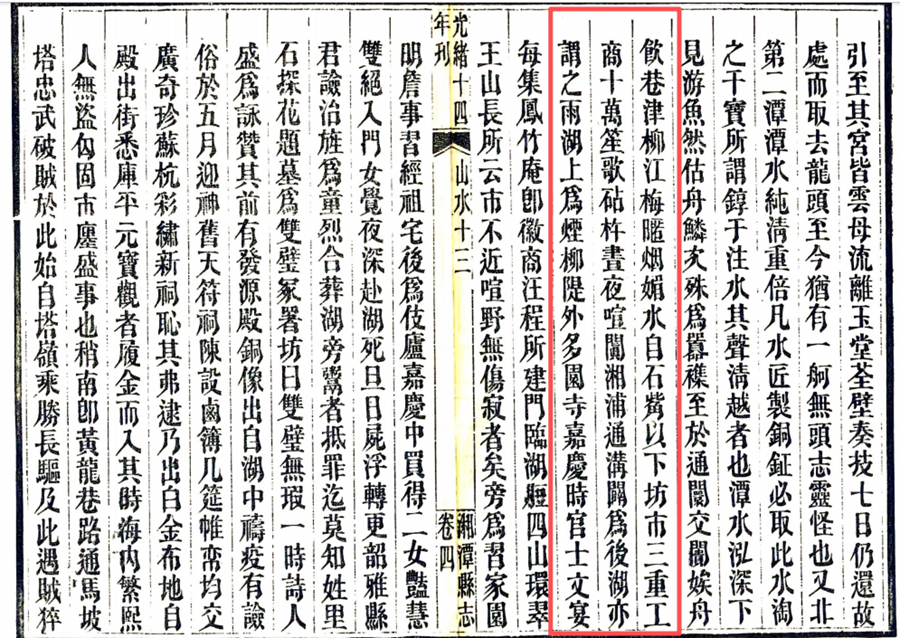 引至其宮皆雲母流離玉堂荃壁奏技七日仍還故
處而取去龍頭至今猶有一舸無頭志靈怪也又北
第二潭潭水純淸重倍凡水匠製銅鉦必取此水淘
之干寶所謂錞于注水其聲淸越者也潭水泓深下
見游魚然估舟鱗次殊爲囂襍至於通闤交闠娭舟
飮巷津柳江梅暱烟媚水自石觜以下坊市三重工
商十萬笙歌砧杵晝夜喧闐湘浦通溝闢爲後湖亦
謂之雨湖上爲煙柳隄外多園寺嘉慶時官士文宴
每集鳳竹庵卽徽商汪程所建門臨湖四山環翠
王山長所云市不近喧野無傷寂者矣旁爲習家園
光緒十四年刊
山水十三
湘潭縣志卷四
明詹事習經祖宅後爲伎廬嘉慶中買得二女豔慧
雙絕入門女覺夜深赴湖死旦日屍浮轉更韶雅縣
君諗治旌爲童烈合葬湖旁鬻者抵罪迄莫知姓里
石探花題墓爲雙璧冢署坊曰雙璧無瑕一時詩人
盛爲詠贊其前有發源殿銅像出自湖中禱疫有諭
俗於五月迎神舊天符祠陳設鹵簿几筵帷帟均交
廣奇珍蘇杭彩繡新祠恥其弗逮乃出白金布地自
殿出街悉庫平元寶觀者履金而入其時海內繁熙
人無盜囚固市廛盛事也稍南卽黃龍巷路通馬坡
塔忠武破賊於此始自塔嶺乘勝長驅及此遇賊猝